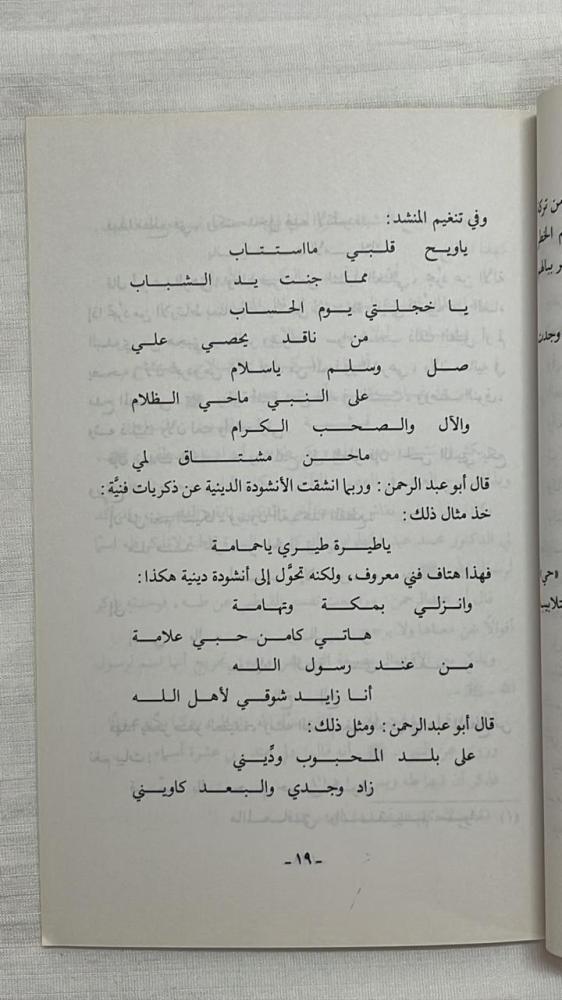 وفي تنغيم المنشد :
ياويح قلبي مااستتاب
مما جنت يد الشباب
يا خجلتي يوم الحساب
من ناقد يحصي علي
صل وسلم ياسلام
على النبي ماحي الظلام
والآل والصحب الكرام
ماحن مشتاق لمي
قال أبو عبد الرحمن : وربما انشقت الأنشودة الدينية عن ذكريات فنيَّة :
خذ مثال ذلك :
ياطيرة طيري ياحمامة
فهذا هتاف فني معروف ، ولكنه تحوَّل إلى أنشودة دينية هكذا :
وانزلي بمكة وتهامة
هاتي كامن حبي علامة
من عند رسول الله
أنا زايد شوقي لأهل الله
قال أبو عبدالرحمن : ومثل ذلك :
على بلد المحبوب ودِّيني
زاد وجدي والبعد كاويني
- ١٩ -